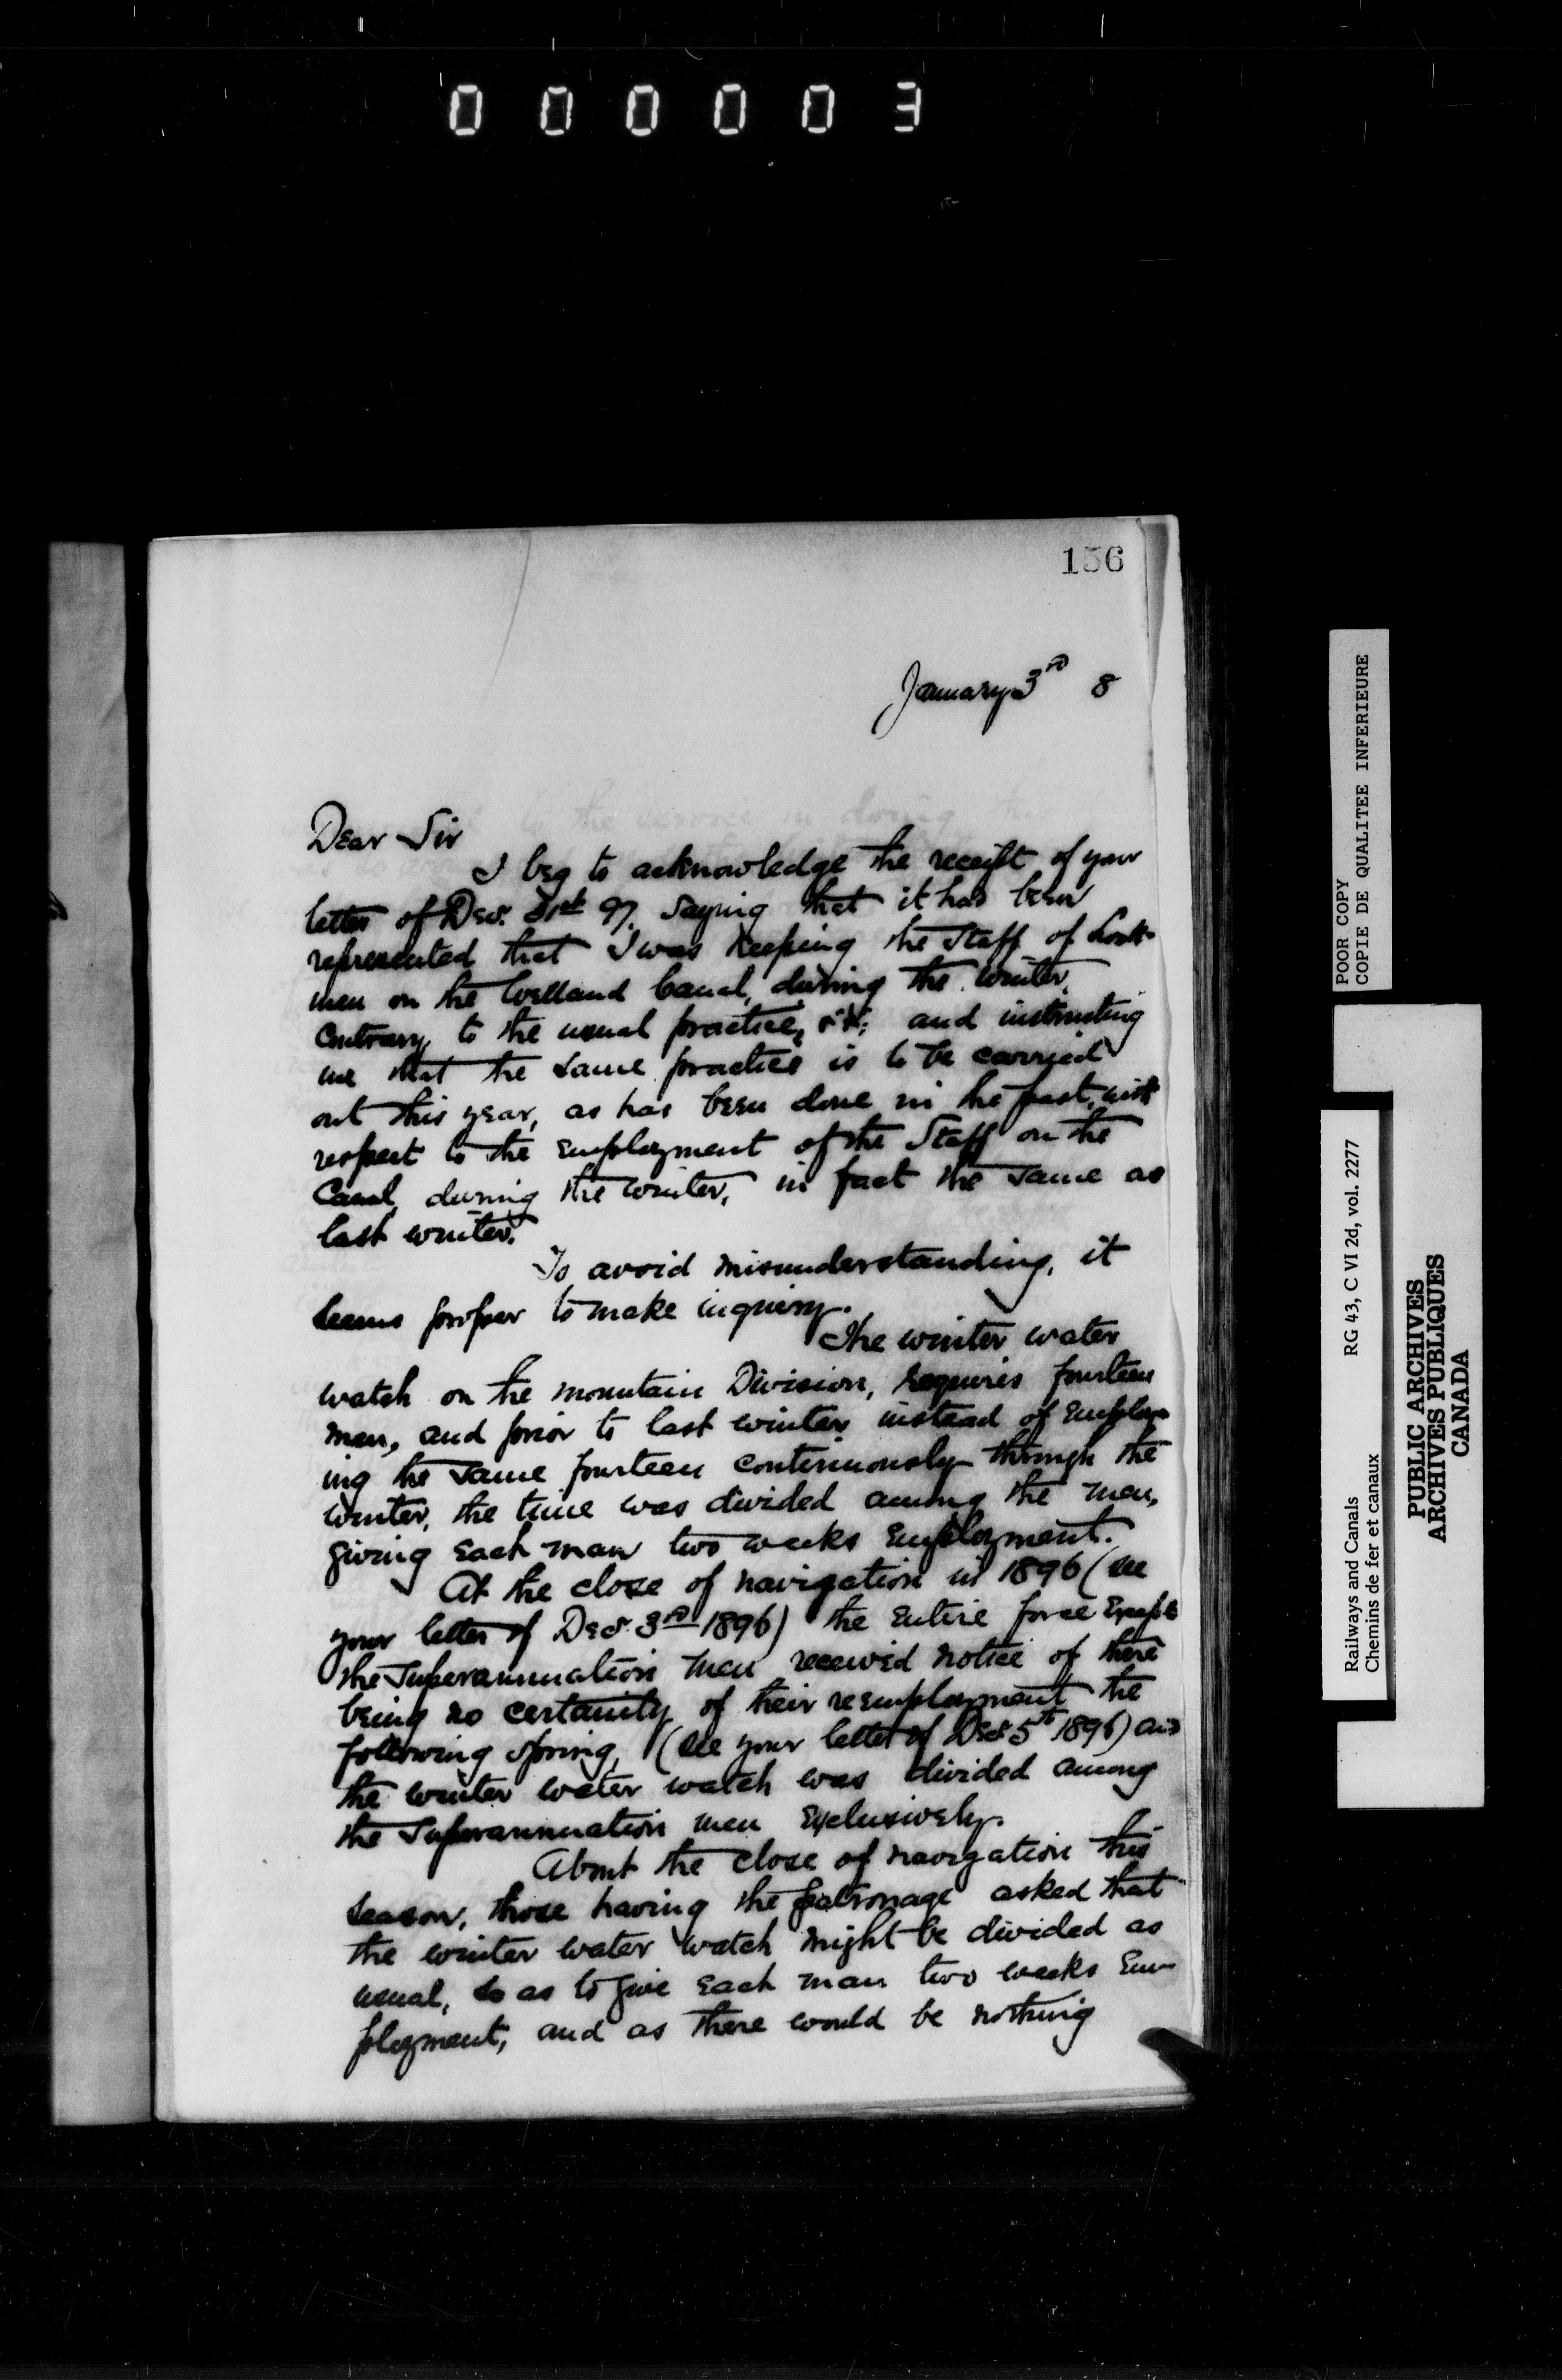 000003
156
January 3rd 8
Dear Sir
I beg to acknowledge the receipt of your
letter of Dec. 31st 97. Saying that it has been
represented that I was keeping the Staff of Lock-
men on the Welland Canal, during the winter,
Contrary to the usual practice, &c; and instructing
me that the same practice is to be carried
out this year, as has been done in the past, with
respect to the Employment of the Staff on the
Canal, during the winter, in fact the same as
last winter.
To avoid misunderstanding, it
seems proper to make inquiry.
The winter water
watch on the mountain Division, requires fourteen
men, and prior to last winter instead of Employ-
ing the same fourteen continuously through the
winter, the time was divided among the men,
giving each man two weeks Employment.
At the close of navigation in 1896 (see
your letter of Dec. 3rd 1896) the Entire force Except
the Superannuation men received notice of there
being no certainty of their reemployment the
following spring, (see your letter of Dec 5th 1896) and
the winter water watch was divided among
the Superannuation men Exclusively.
About the close of navigation this
season, those having the patronage asked that
the winter water watch might be divided as
usual, so as to give Each man two weeks Em-
ployment, and as there would be nothing
POOR COPY
COPIE DE QUALITEE INFERIEURE
Railways and Canals RG 43, C VI 2d, vol. 2277
Chemins de fer et canaux
PUBLIC ARCHIVES
ARCHIVES PUBLIQUES
CANADA